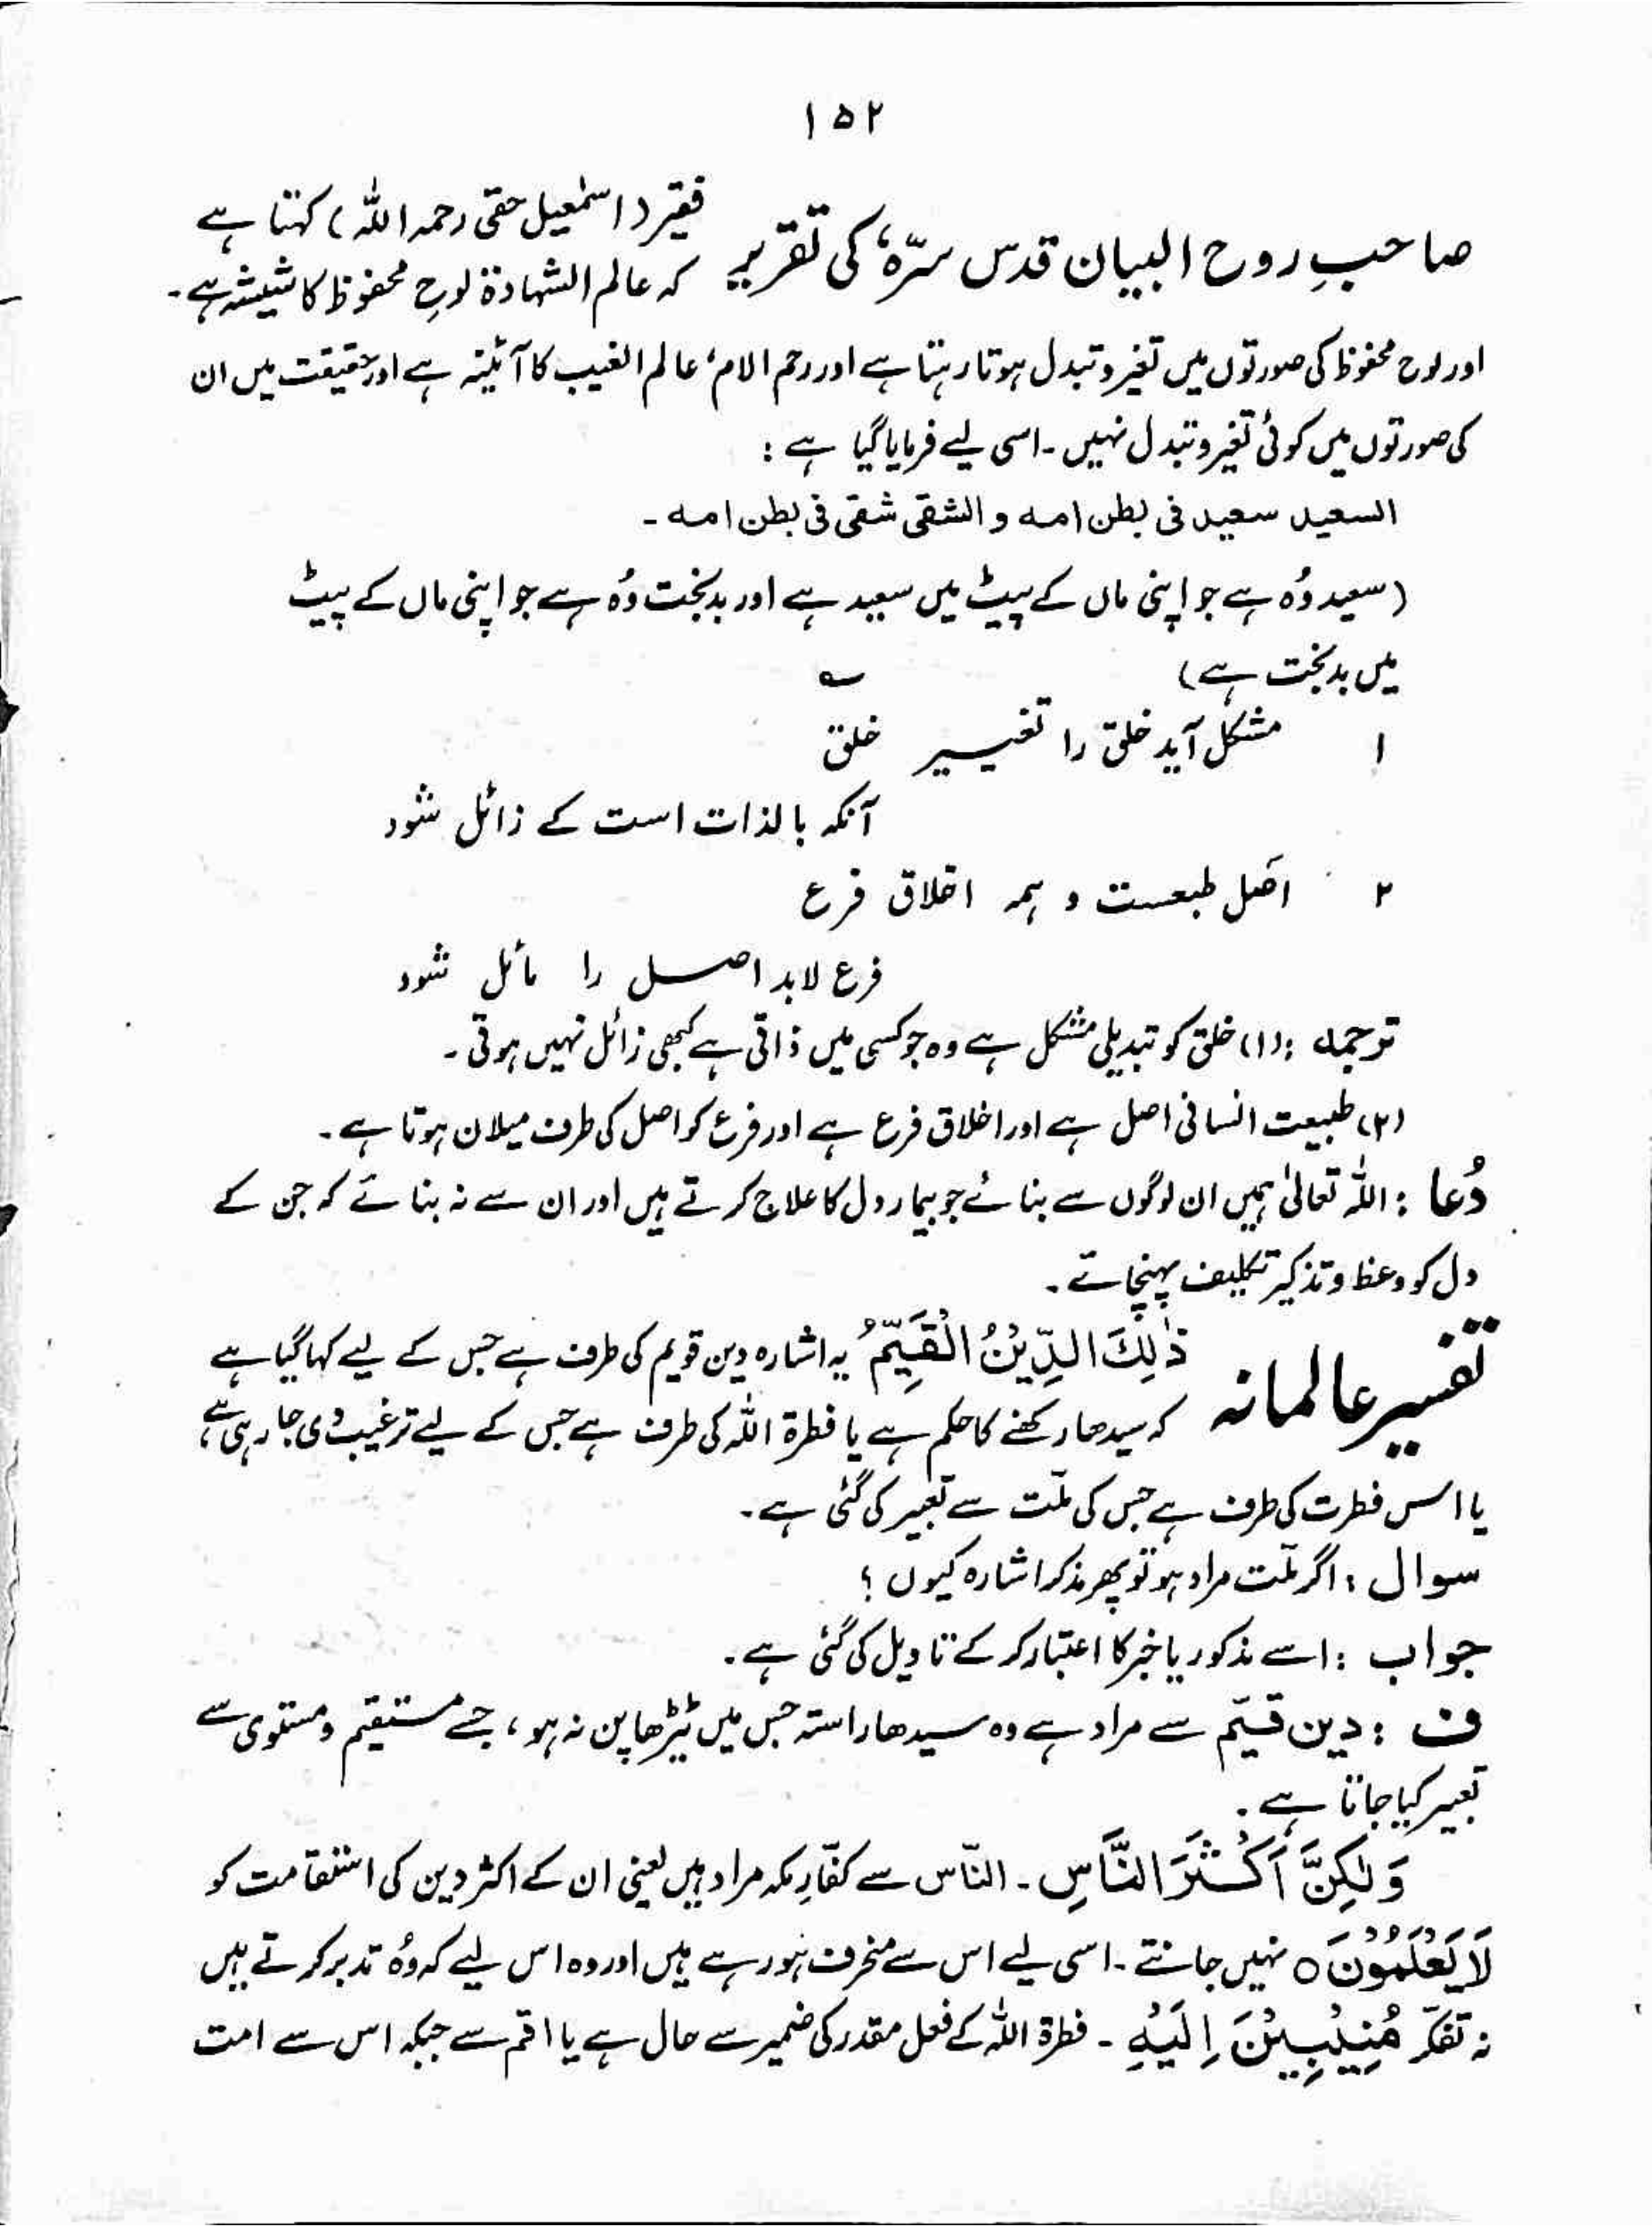 ۱۵۲
صاحبِ روح البیان قدس سرّہٗ کی تقریر فقیر (اسمٰعیل حقی رحمہ اللہ) کہتا ہے
کہ عالم الشہادۃ لوحِ محفوظ کا شیشہ ہے۔
اور لوح محفوظ کی صورتوں میں تغیر و تبدل ہوتا رہتا ہے اور رحم الام، عالم الغیب کا آئینہ ہے اور حقیقت میں ان
کی صورتوں میں کوئی تغیر و تبدل نہیں۔ اسی لیے فرمایا گیا ہے :
السعید سعید فی بطن امہ و الشقی شقی فی بطن امہ۔
(سعید وُہ ہے جو اپنی ماں کے پیٹ میں سعید ہے اور بدبخت وُہ ہے جو اپنی ماں کے پیٹ
میں بدبخت ہے) ؎
۱ مشکل آید خلق را تغییر خلق
آنکہ بالذات است کے زائل شود
۲ اصل طبعست و ہمہ اخلاق فرع
فرع لابد اصل را مائل شود
ترجمہ : (۱) خلق کو تبدیلی مشکل ہے وہ جو کسی میں ذاتی ہے کبھی زائل نہیں ہوتی۔
(۲) طبیعت انسانی اصل ہے اور اخلاق فرع ہے اور فرع کو اصل کی طرف میلان ہوتا ہے۔
دُعا : اللہ تعالیٰ ہمیں ان لوگوں سے بنائے جو بیمار دل کا علاج کرتے ہیں اور ان سے نہ بنائے کہ جن کے
دل کو وعظ و تذکیر تکلیف پہنچاتے۔
تفسیر عالمانہ ذٰلِکَ الدِّیْنُ الْقَیِّمُ یہ اشارہ دین قویم کی طرف ہے جس کے لیے کہا گیا ہے
کہ سیدھا رکھنے کا حکم ہے یا فطرۃ اللہ کی طرف ہے جس کے لیے ترغیب دی جا رہی ہے،
یا اس فطرت کی طرف ہے جس کی ملّت سے تعبیر کی گئی ہے۔
سوال : اگر ملّت مراد ہو تو پھر مذکر اشارہ کیوں ؟
جواب : اسے مذکور یا خبر کا اعتبار کر کے تاویل کی گئی ہے۔
ف : دین قیّم سے مراد ہے وہ سیدھا راستہ جس میں ٹیڑھا پن نہ ہو، جسے مستقیم و مستوی سے
تعبیر کیا جاتا ہے۔
وَلٰکِنَّ اَکْثَرَ النَّاسِ۔ النّاس سے کفّارِ مکہ مراد ہیں یعنی ان کے اکثر دین کی استقامت کو
لَا یَعْلَمُوْنَ ○ نہیں جانتے۔ اسی لیے اس سے منحرف ہو رہے ہیں اور وہ اس لیے کہ وُہ تدبر کرتے ہیں
نہ تفکّر مُنِیْبِیْنَ اِلَیْہِ۔ فطرۃ اللہ کے فعل مقدر کی ضمیر سے حال ہے یا اقم سے جبکہ اس سے امت